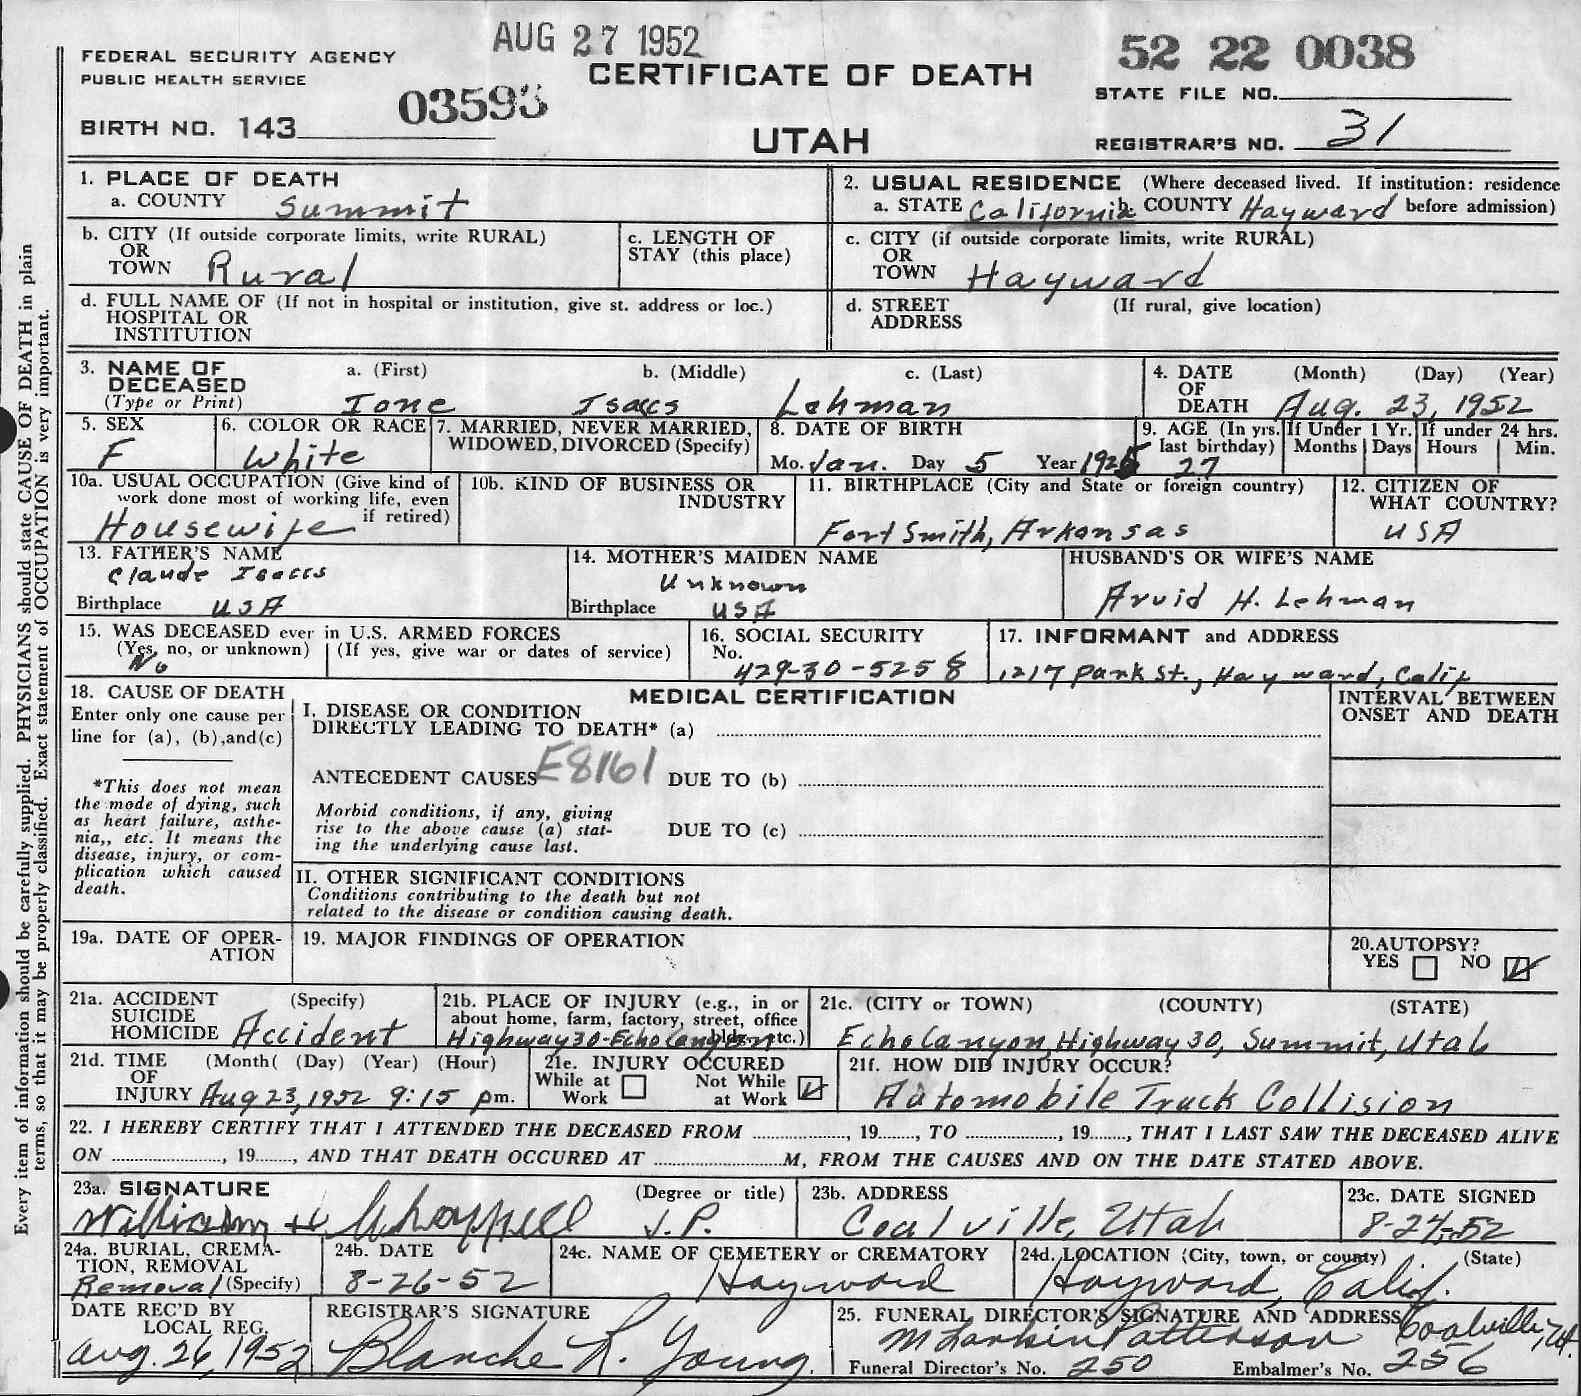 AUG 27 1952
52 22 0038
FEDERAL SECURITY AGENCY
PUBLIC HEALTH SERVICE
CERTIFICATE OF DEATH
STATE FILE NO.
03593
BIRTH NO. 143
UTAH
REGISTRAR'S NO. 31
Every item of information should be carefully supplied. PHYSICIANS should state CAUSE OF DEATH in plain
terms, so that it may be properly classified. Exact statement of OCCUPATION is very important.
1. PLACE OF DEATH
a. COUNTY Summit
2. USUAL RESIDENCE (Where deceased lived. If institution: residence
a. STATE California b. COUNTY Hayward before admission)
b. CITY (If outside corporate limits, write RURAL)
OR
TOWN Rural
c. LENGTH OF
STAY (this place)
c. CITY (if outside corporate limits, write RURAL)
OR
TOWN Hayward
d. FULL NAME OF (If not in hospital or institution, give st. address or loc.)
HOSPITAL OR
INSTITUTION
d. STREET (If rural, give location)
ADDRESS
3. NAME OF a. (First) b. (Middle) c. (Last)
DECEASED
(Type or Print) Ione Isaccs Lehman
4. DATE (Month) (Day) (Year)
OF
DEATH Aug. 23, 1952
5. SEX
F
6. COLOR OR RACE
White
7. MARRIED, NEVER MARRIED,
WIDOWED, DIVORCED (Specify)
8. DATE OF BIRTH
Mo. Jan. Day 5 Year 1925
9. AGE (In yrs.
last birthday) 27
If Under 1 Yr.
Months Days
If under 24 hrs.
Hours Min.
10a. USUAL OCCUPATION (Give kind of
work done most of working life, even
if retired)
Housewife
10b. KIND OF BUSINESS OR
INDUSTRY
11. BIRTHPLACE (City and State or foreign country)
Fort Smith, Arkansas
12. CITIZEN OF
WHAT COUNTRY?
USA
13. FATHER'S NAME
Claude Isaccs
Birthplace USA
14. MOTHER'S MAIDEN NAME
Unknown
Birthplace USA
HUSBAND'S OR WIFE'S NAME
Arvid H. Lehman
15. WAS DECEASED ever in U.S. ARMED FORCES
(Yes, no, or unknown) (If yes, give war or dates of service)
No
16. SOCIAL SECURITY
No.
429-30-5258
17. INFORMANT and ADDRESS
1217 Park St., Hayward, Calif
18. CAUSE OF DEATH
Enter only one cause per
line for (a), (b),and(c)
*This does not mean
the mode of dying, such
as heart failure, asthe-
nia,, etc. It means the
disease, injury, or com-
plication which caused
death.
MEDICAL CERTIFICATION
I. DISEASE OR CONDITION
DIRECTLY LEADING TO DEATH* (a)
ANTECEDENT CAUSES E8161 DUE TO (b)
Morbid conditions, if any, giving
rise to the above cause (a) stat-
ing the underlying cause last.
DUE TO (c)
II. OTHER SIGNIFICANT CONDITIONS
Conditions contributing to the death but not
related to the disease or condition causing death.
INTERVAL BETWEEN
ONSET AND DEATH
19a. DATE OF OPER-
ATION
19. MAJOR FINDINGS OF OPERATION
20.AUTOPSY?
YES NO
21a. ACCIDENT (Specify)
SUICIDE
HOMICIDE Accident
21b. PLACE OF INJURY (e.g., in or
about home, farm, factory, street, office
bldg., etc.)
Highway 30-Echo Canyon
21c. (CITY or TOWN) (COUNTY) (STATE)
Echo Canyon, Highway 30, Summit, Utah
21d. TIME (Month( (Day) (Year) (Hour)
OF
INJURY Aug 23, 1952 9:15 pm.
21e. INJURY OCCURED
While at Work Not While at Work
21f. HOW DID INJURY OCCUR?
Automobile Truck Collision
22. I HEREBY CERTIFY THAT I ATTENDED THE DECEASED FROM ................, 19......., TO ................, 19......., THAT I LAST SAW THE DECEASED ALIVE
ON ................, 19......., AND THAT DEATH OCCURED AT ......................M, FROM THE CAUSES AND ON THE DATE STATED ABOVE.
23a. SIGNATURE (Degree or title)
William H Chappell J.P.
23b. ADDRESS
Coalville, Utah
23c. DATE SIGNED
8-24-52
24a. BURIAL, CREMA-
TION, REMOVAL
Removal (Specify)
24b. DATE
8-26-52
24c. NAME OF CEMETERY or CREMATORY
Hayward
24d. LOCATION (City, town, or county) (State)
Hayward, Calif.
DATE REC'D BY
LOCAL REG.
Aug. 26, 1952
REGISTRAR'S SIGNATURE
Blanche R. Young
25. FUNERAL DIRECTOR'S SIGNATURE AND ADDRESS
M Larkin Patterson Coalville, Ut.
Funeral Director's No. 250 Embalmer's No. 256